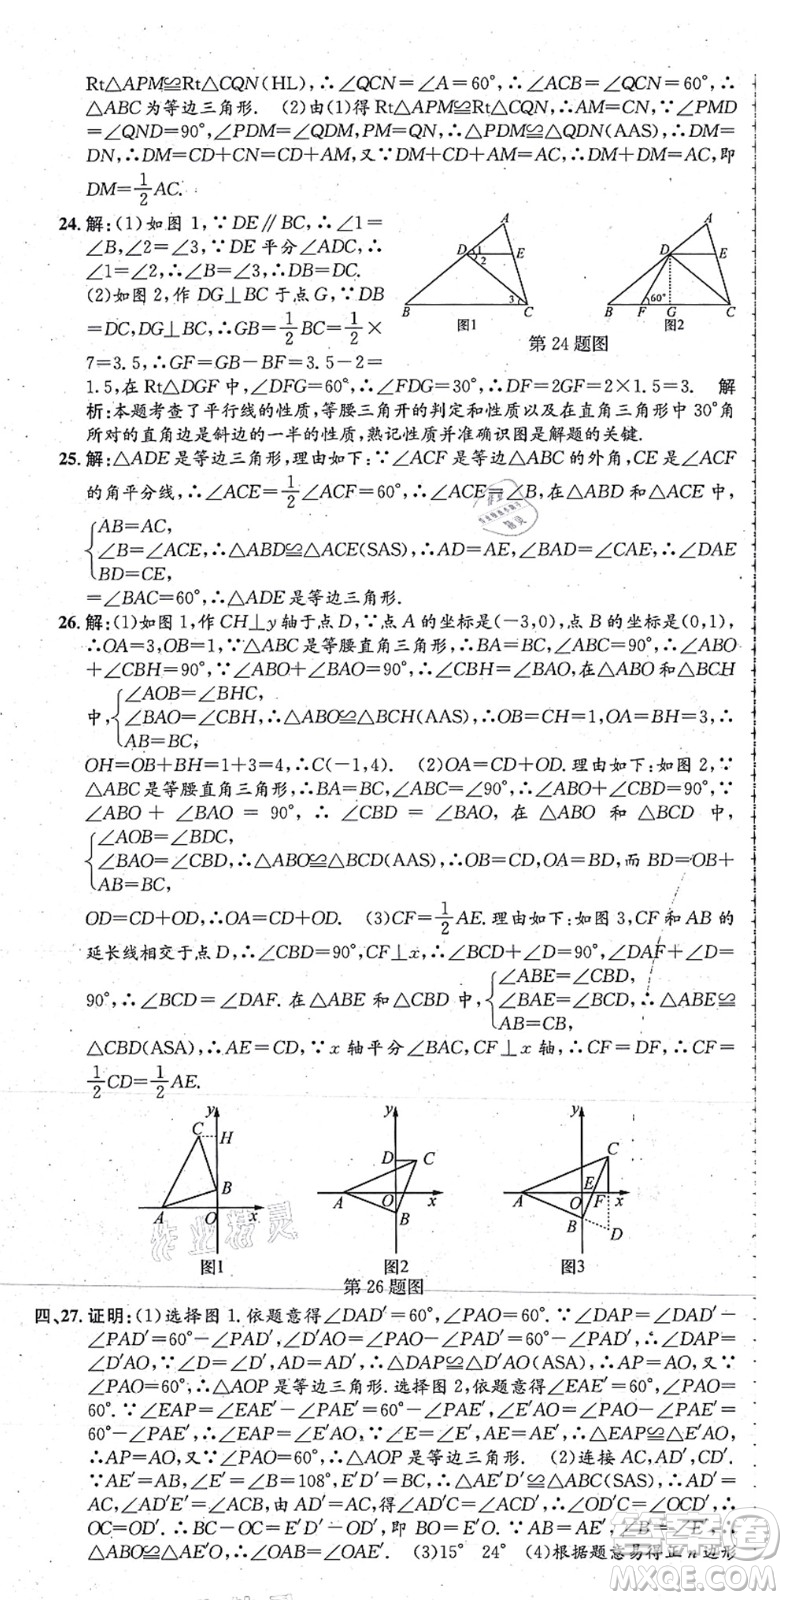 Rt△APM≌Rt△CQN(HL),∴∠QCN=∠A=60°,∴∠ACB=∠QCN=60°,∴
△ABC为等边三角形. (2)由(1)得Rt△APM≌Rt△CQN,∴AM=CN,∵∠PMD
=∠QND=90°,∠PDM=∠QDM,PM=QN,∴△PDM≌△QDN(AAS),∴DM=
DN,∴DM=CD+CN=CD+AM,又∵DM+CD+AM=AC,∴DM+DM=AC,即
DM=1/2AC.
24.解:(1)如图1,∵DE∥BC,∴∠1=
∠B,∠2=∠3,∵DE平分∠ADC,∴
∠1=∠2,∴∠B=∠3,∴DB=DC.
(2)如图2,作DG⊥BC于点G,∵DB
=DC,DG⊥BC,∴GB=1/2BC=1/2×
7=3.5,∴GF=GB-BF=3.5-2=
A
D
1
2
E
B
3
C
图1
A
D
E
60°
B
F
G
C
图2
第24题图
1.5,在Rt△DGF中,∠DFG=60°,∴∠FDG=30°,∴DF=2GF=2×1.5=3. 解
析:本题考查了平行线的性质,等腰三角开的判定和性质以及在直角三角形中30°角
所对的直角边是斜边的一半的性质,熟记性质并准确识图是解题的关键.
25.解:△ADE是等边三角形,理由如下:∵∠ACF是等边△ABC的外角,CE是∠ACF
的角平分线,∴∠ACE=1/2∠ACF=60°,∴∠ACE=∠B,在△ABD和△ACE中,
AB=AC,
∠B=∠ACE,∴△ABD≌△ACE(SAS),∴AD=AE,∠BAD=∠CAE,∴∠DAE
BD=CE,
=∠BAC=60°,∴△ADE是等边三角形.
26.解:(1)如图1,作CH⊥y轴于点D,∵点A的坐标是(-3,0),点B的坐标是(0,1),
∴OA=3,OB=1,∵△ABC是等腰直角三角形,∴BA=BC,∠ABC=90°,∴∠ABO
+∠CBH=90°,∵∠ABO+∠BAO=90°,∴∠CBH=∠BAO,在△ABO和△BCH
∠AOB=∠BHC,
中,∠BAO=∠CBH,∴△ABO≌△BCH(AAS),∴OB=CH=1,OA=BH=3,∴
AB=BC,
OH=OB+BH=1+3=4,∴C(-1,4). (2)OA=CD+OD.理由如下:如图2,∵
△ABC是等腰直角三角形,∴BA=BC,∠ABC=90°,∴∠ABO+∠CBD=90°,∵
∠ABO+∠BAO=90°,∴∠CBD=∠BAO,在△ABO和△BCD中,
∠AOB=∠BDC,
∠BAO=∠CBD,∴△ABO≌△BCD(AAS),∴OB=CD,OA=BD,而BD=OB+
AB=BC,
OD=CD+OD,∴OA=CD+OD. (3)CF=1/2AE.理由如下:如图3,CF和AB的
延长线相交于点D,∴∠CBD=90°,CF⊥x,∴∠BCD+∠D=90°,∠DAF+∠D=
90°,∴∠BCD=∠DAF.在△ABE和△CBD中,
∠ABE=∠CBD,
∠BAE=∠BCD,∴△ABE≌
AB=CB,
△CBD(ASA),∴AE=CD,∵x轴平分∠BAC,CF⊥x轴,∴CF=DF,∴CF=
1/2CD=1/2AE.
y
C
H
B
A
O
x
图1
y
D
C
A
O
x
B
图2
y
C
A
O
E
F
x
B
D
图3
第26题图
四、27.证明:(1)选择图1.依题意得∠DAD′=60°,∠PAO=60°.∵∠DAP=∠DAD′-
∠PAD′=60°-∠PAD′,∠D′AO=∠PAO-∠PAD′=60°-∠PAD′,∴∠DAP=
∠D′AO.∵∠D=∠D′,AD=AD′,∴△DAP≌△D′AO(ASA),∴AP=AO,又∵
∠PAO=60°,∴△AOP是等边三角形.选择图2,依题意得∠EAE′=60°,∠PAO=
60°.∵∠EAP=∠EAE′-∠PAE′=60°-∠PAE′,∠E′AO=∠PAO-∠PAE′=
60°-∠PAE′,∴∠EAP=∠E′AO,∵∠E=∠E′,AE=AE′,∴△EAP≌△E′AO,
∴AP=AO,又∵∠PAO=60°,∴△AOP是等边三角形. (2)连接AC,AD′,CD′.
∵AE′=AB,∠E′=∠B=108°,E′D′=BC,∴△AE′D′≌△ABC(SAS),∴AD′=
AC,∠AD′E′=∠ACB,由AD′=AC,得∠AD′C=∠ACD′,∴∠OD′C=∠OCD′,∴
OC=OD′.∴BC-OC=E′D′-OD′,即BO=E′O. ∵AB=AE′,∠B=∠E′,∴
△ABO≌△AE′O,∴∠OAB=∠OAE′. (3)15° 24° (4)根据题意易得正n边形
作业精灵
MXQE.COM